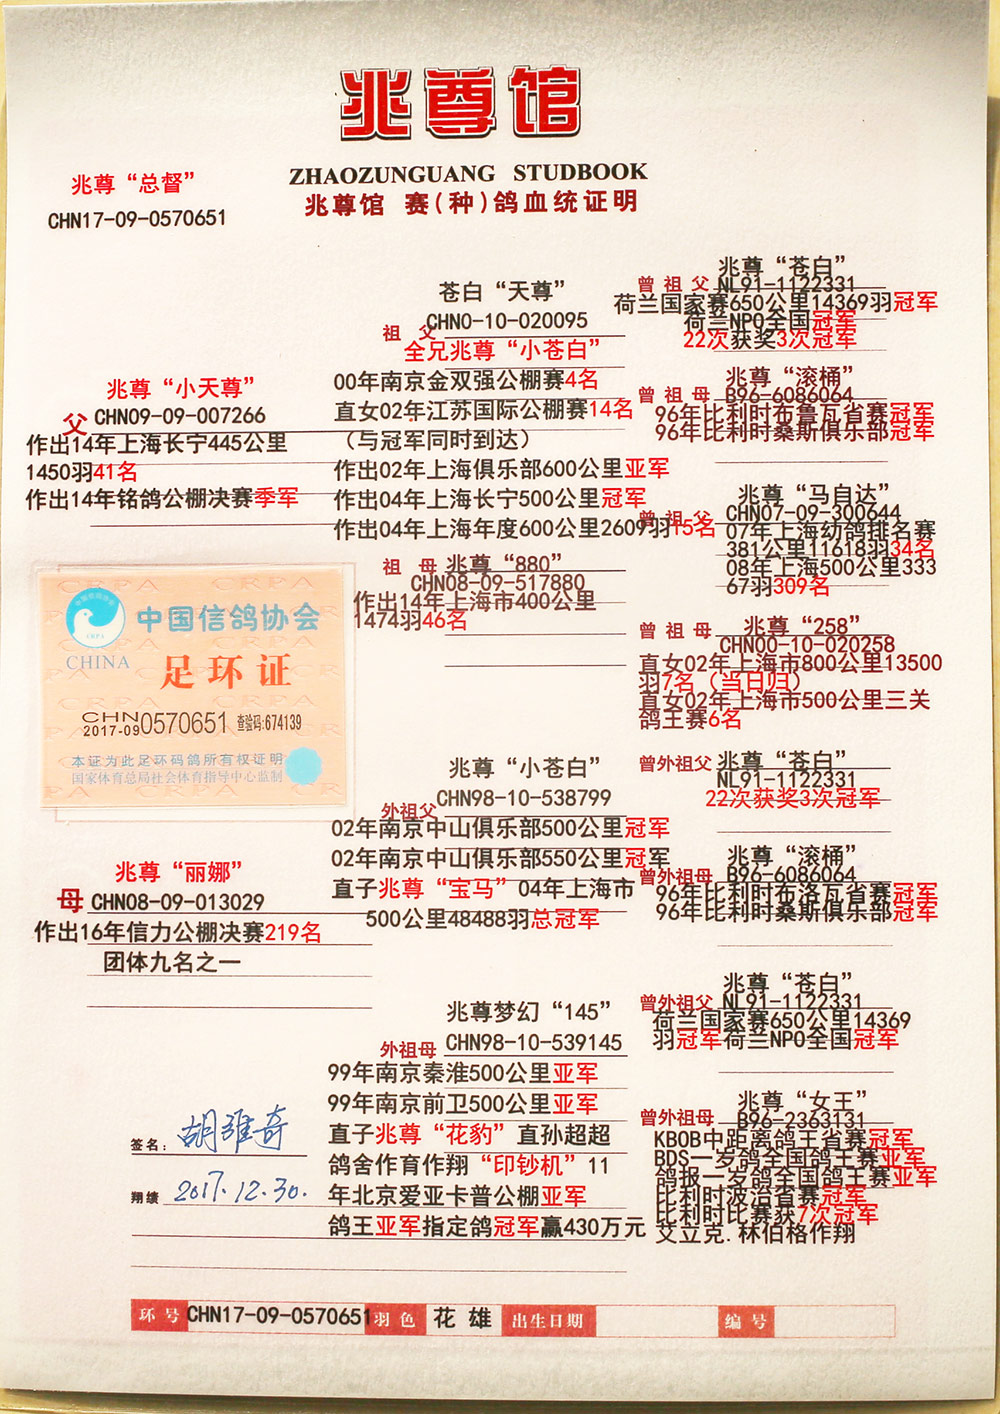 兆尊馆
ZHAOZUNGUANG STUDBOOK
兆尊馆 赛(种)鸽血统证明
兆尊“总督”
CHN17-09-0570651
父
兆尊“小天尊”
CHN09-09-007266
作出14年上海长宁445公里
1450羽41名
作出14年铭鸽公棚决赛季军
祖父
苍白“天尊”
CHN0-10-020095
全兄兆尊“小苍白”
00年南京金双强公棚赛4名
直女02年江苏国际公棚赛14名
（与冠军同时到达）
作出02年上海俱乐部600公里亚军
作出04年上海长宁500公里冠军
作出04年上海年度600公里2609羽15名
祖母
兆尊“880”
CHN08-09-517880
作出14年上海市400公里
1474羽46名
曾祖父
兆尊“苍白”
NL91-1122331
荷兰国家赛650公里14369羽冠军
荷兰NPO全国冠军
22次获奖3次冠军
曾祖母
兆尊“滚桶”
B96-6086064
96年比利时布鲁瓦省赛冠军
96年比利时桑斯俱乐部冠军
曾祖父
兆尊“马自达”
CHN07-09-300644
07年上海幼鸽排名赛
381公里11618羽34名
08年上海500公里333
67羽309名
曾祖母
兆尊“258”
CHN00-10-020258
直女02年上海市800公里13500
羽7名（当日归）
直女02年上海市500公里三关
鸽王赛6名
中国信鸽协会
CRPA
CHINA
足环证
CHN
2017-09 0570651 查验码:674139
本证为此足环码鸽所有权证明
国家体育总局社会体育指导中心监制
母
兆尊“丽娜”
CHN08-09-013029
作出16年信力公棚决赛219名
团体九名之一
外祖父
兆尊“小苍白”
CHN98-10-538799
02年南京中山俱乐部500公里冠军
02年南京中山俱乐部550公里冠军
直子兆尊“宝马”04年上海市
500公里48488羽总冠军
外祖母
兆尊梦幻“145”
CHN98-10-539145
99年南京秦淮500公里亚军
99年南京前卫500公里亚军
直子兆尊“花豹”直孙超超
鸽舍作育作翔“印钞机”11
年北京爱亚卡普公棚亚军
鸽王亚军指定鸽冠军赢430万元
曾外祖父
兆尊“苍白”
NL91-1122331
22次获奖3次冠军
曾外祖母
兆尊“滚桶”
B96-6086064
96年比利时布洛瓦省赛冠军
96年比利时桑斯俱乐部冠军
曾外祖父
兆尊“苍白”
NL91-1122331
荷兰国家赛650公里14369
羽冠军荷兰NPO全国冠军
曾外祖母
兆尊“女王”
B96-2363131
KBOB中距离鸽王省赛冠军
BDS一岁鸽全国鸽王赛亚军
鸽报一岁鸽全国鸽王赛亚军
比利时波治省赛冠军
比利时比赛获7次冠军
艾立克.林伯格作翔
签名：胡雅奇
翔绩 2017.12.30.
环号 CHN17-09-0570651 羽色 花雄 出生日期 编号